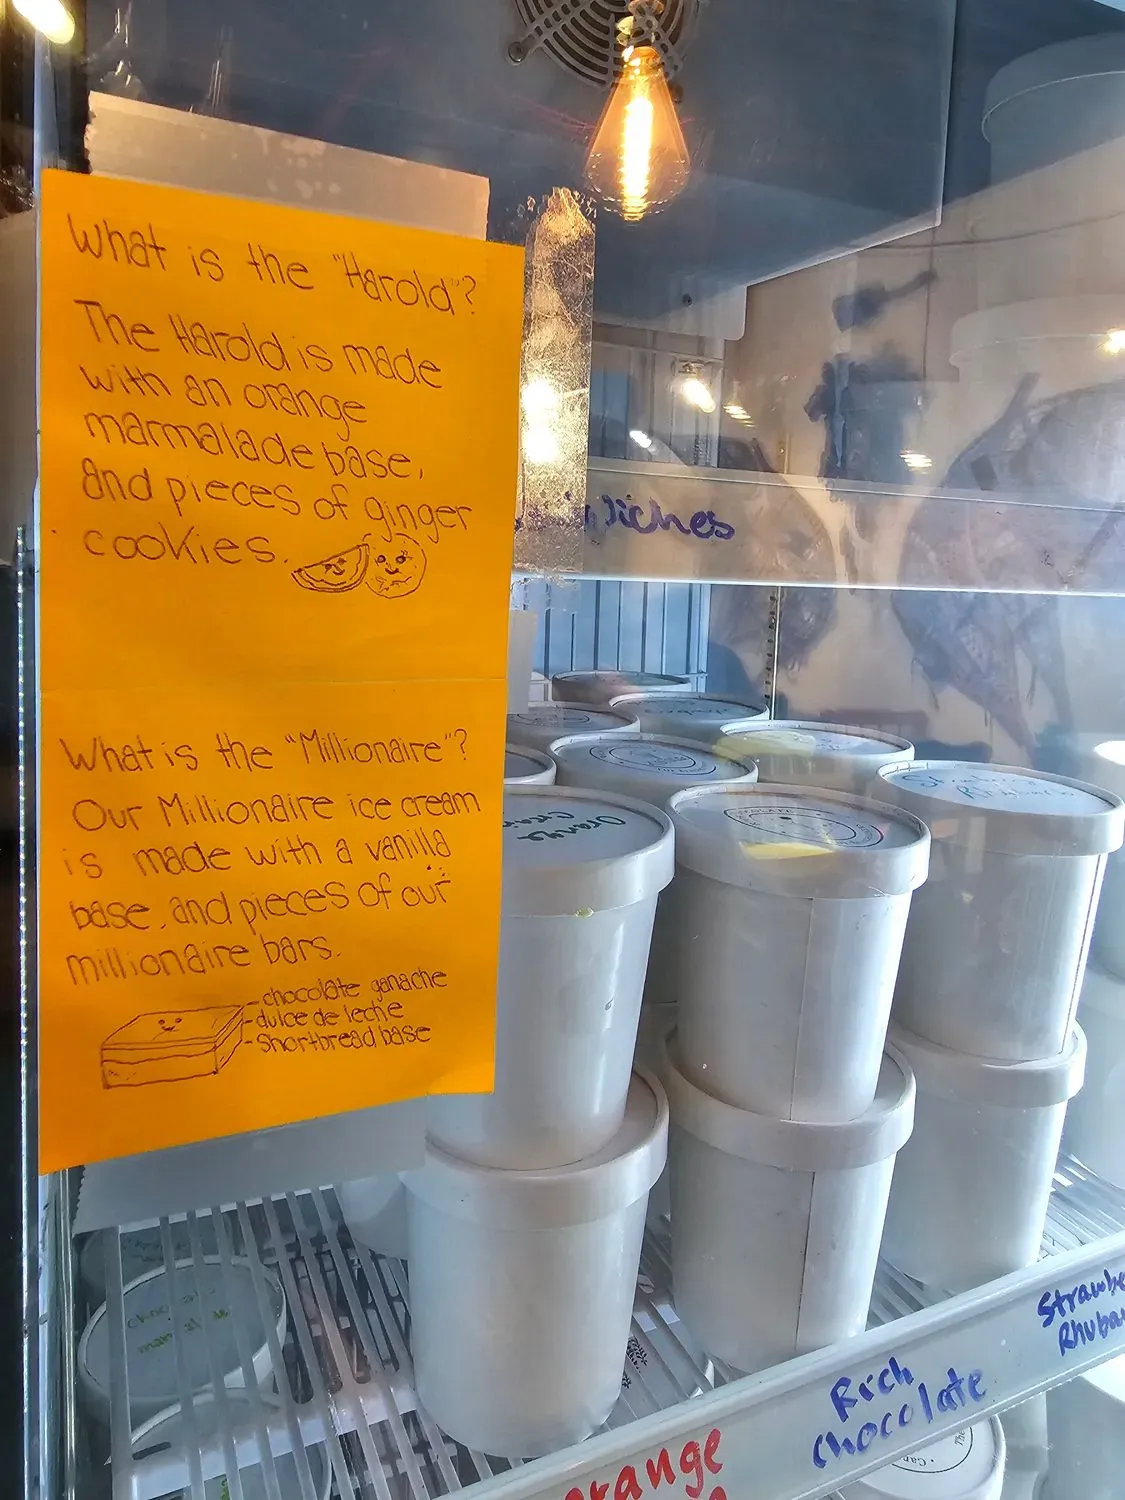 What is the "Harold"?
The Harold is made
with an orange
marmalade base,
and pieces of ginger
cookies.
What is the "Millionaire"?
Our Millionaire ice cream
is made with a vanilla
base, and pieces of our
millionaire bars.
chocolate ganache
dulce de leche
shortbread base
Orange
Rich
chocolate